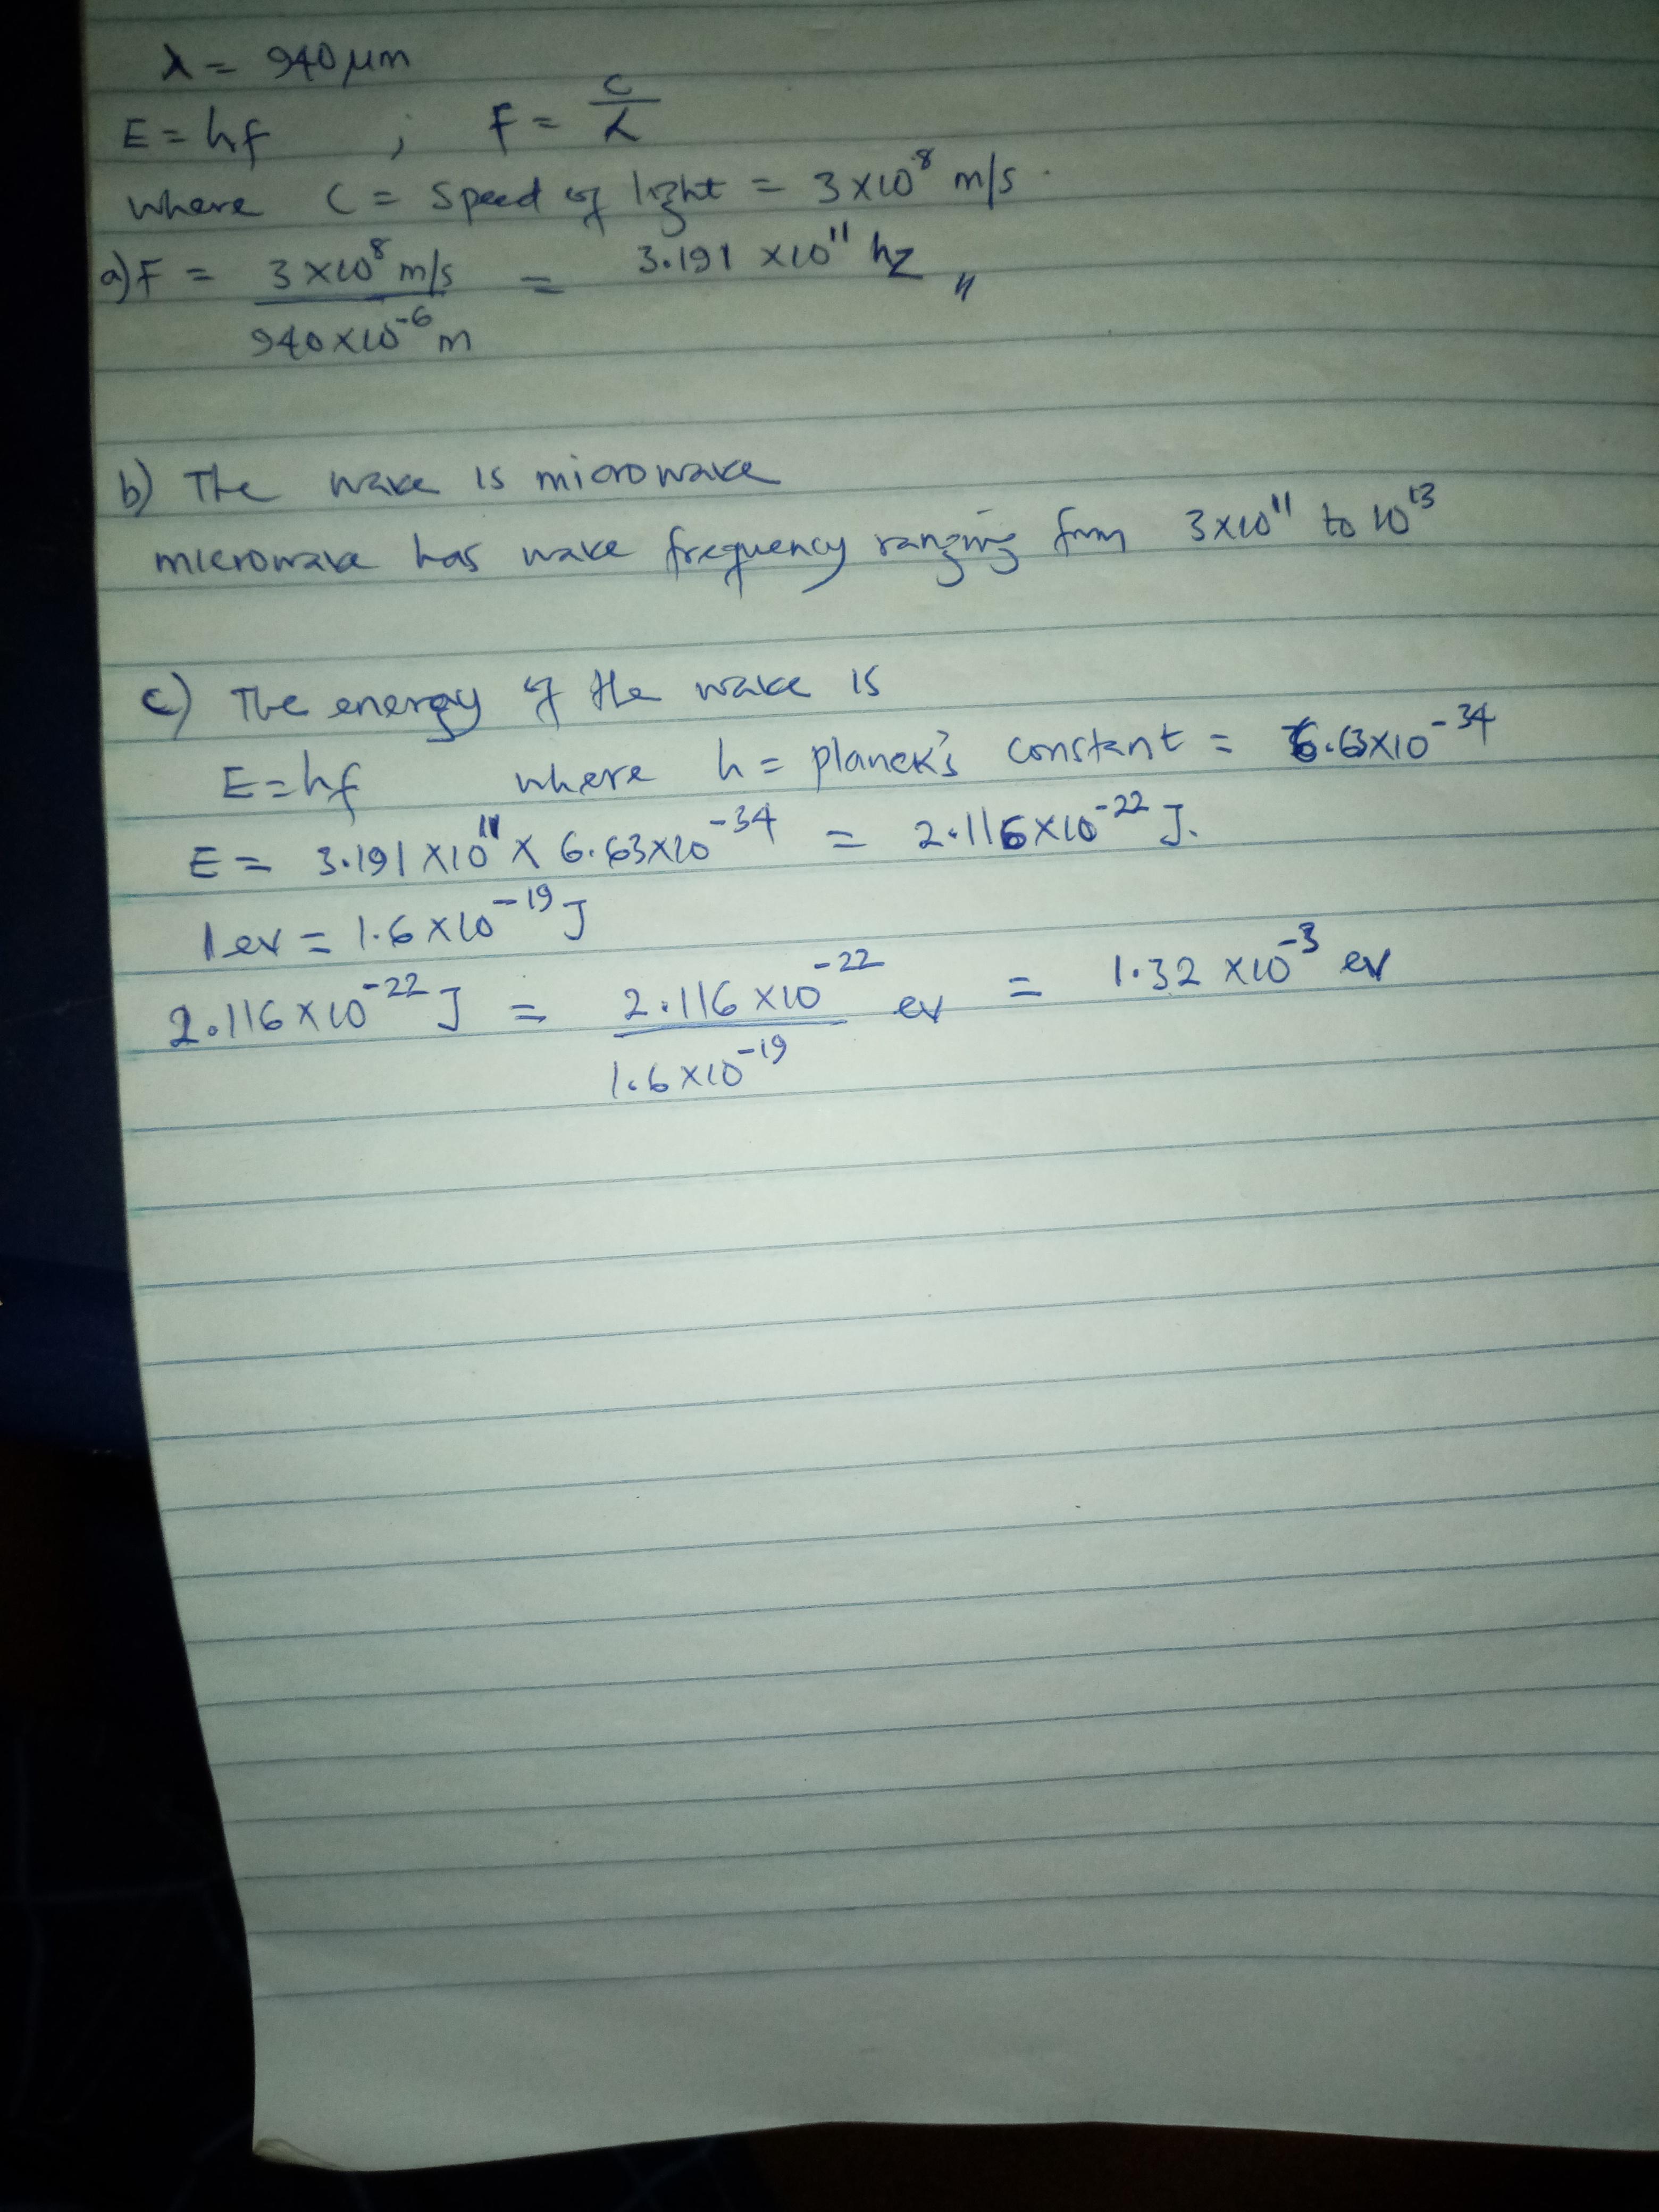 λ = 940 μm
E = hf ; F = c/λ
where C = speed of light = 3 x10⁸ m/s.
a) F = 3 x10⁸ m/s / 940 x10⁻⁶ m = 3.191 x10¹¹ hz "
b) The wave is microwave
microwave has wave frequency ranging from 3x10¹¹ to 10¹³
c) The energy of the wave is
E = hf where h = planck's constant = 6.63x10⁻³⁴
E = 3.191 x10¹¹ x 6.63x10⁻³⁴ = 2.116x10⁻²² J.
1 ev = 1.6 x10⁻¹⁹ J
2.116 x10⁻²² J = 2.116 x10⁻²² / 1.6 x10⁻¹⁹ ev = 1.32 x10⁻³ ev